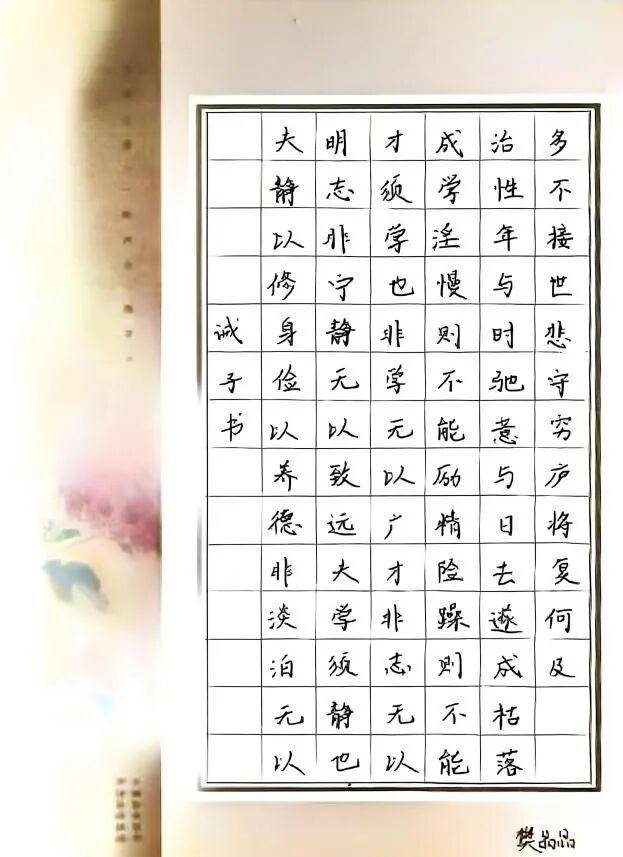 诫子书
夫静以修身俭以养德非淡泊无以
明志非宁静无以致远夫学须静也
才须学也非学无以广才非志无以
成学淫慢则不能励精险躁则不能
治性年与时驰意与日去遂成枯落
多不接世悲守穷庐将复何及
樊晶晶